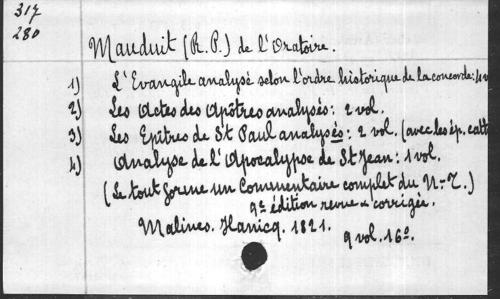 317
280
Mauduit (R.P.) de l'Oratoire.
1) L'Evangile analysé selon l'ordre historique de la concorde: 4 v
2) Les Actes des Apôtres analysés: 2 vol.
3) Les Epîtres de St Paul analysés: 2 vol. (avec les ép. cath
4) Analyse de l'Apocalypse de St Jean: 1 vol.
(Le tout forme un Commentaire complet du N-T.)
9e édition revue & corrigée.
Malines. Hanicq. 1821.
9 vol. 16o.